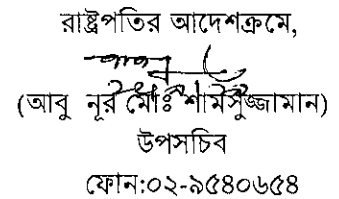 রাষ্ট্রপতির আদেশক্রমে,
(আবু নূর মোঃ শামসুজ্জামান)
উপসচিব
ফোন:০২-৯৫৪০৬৫৪